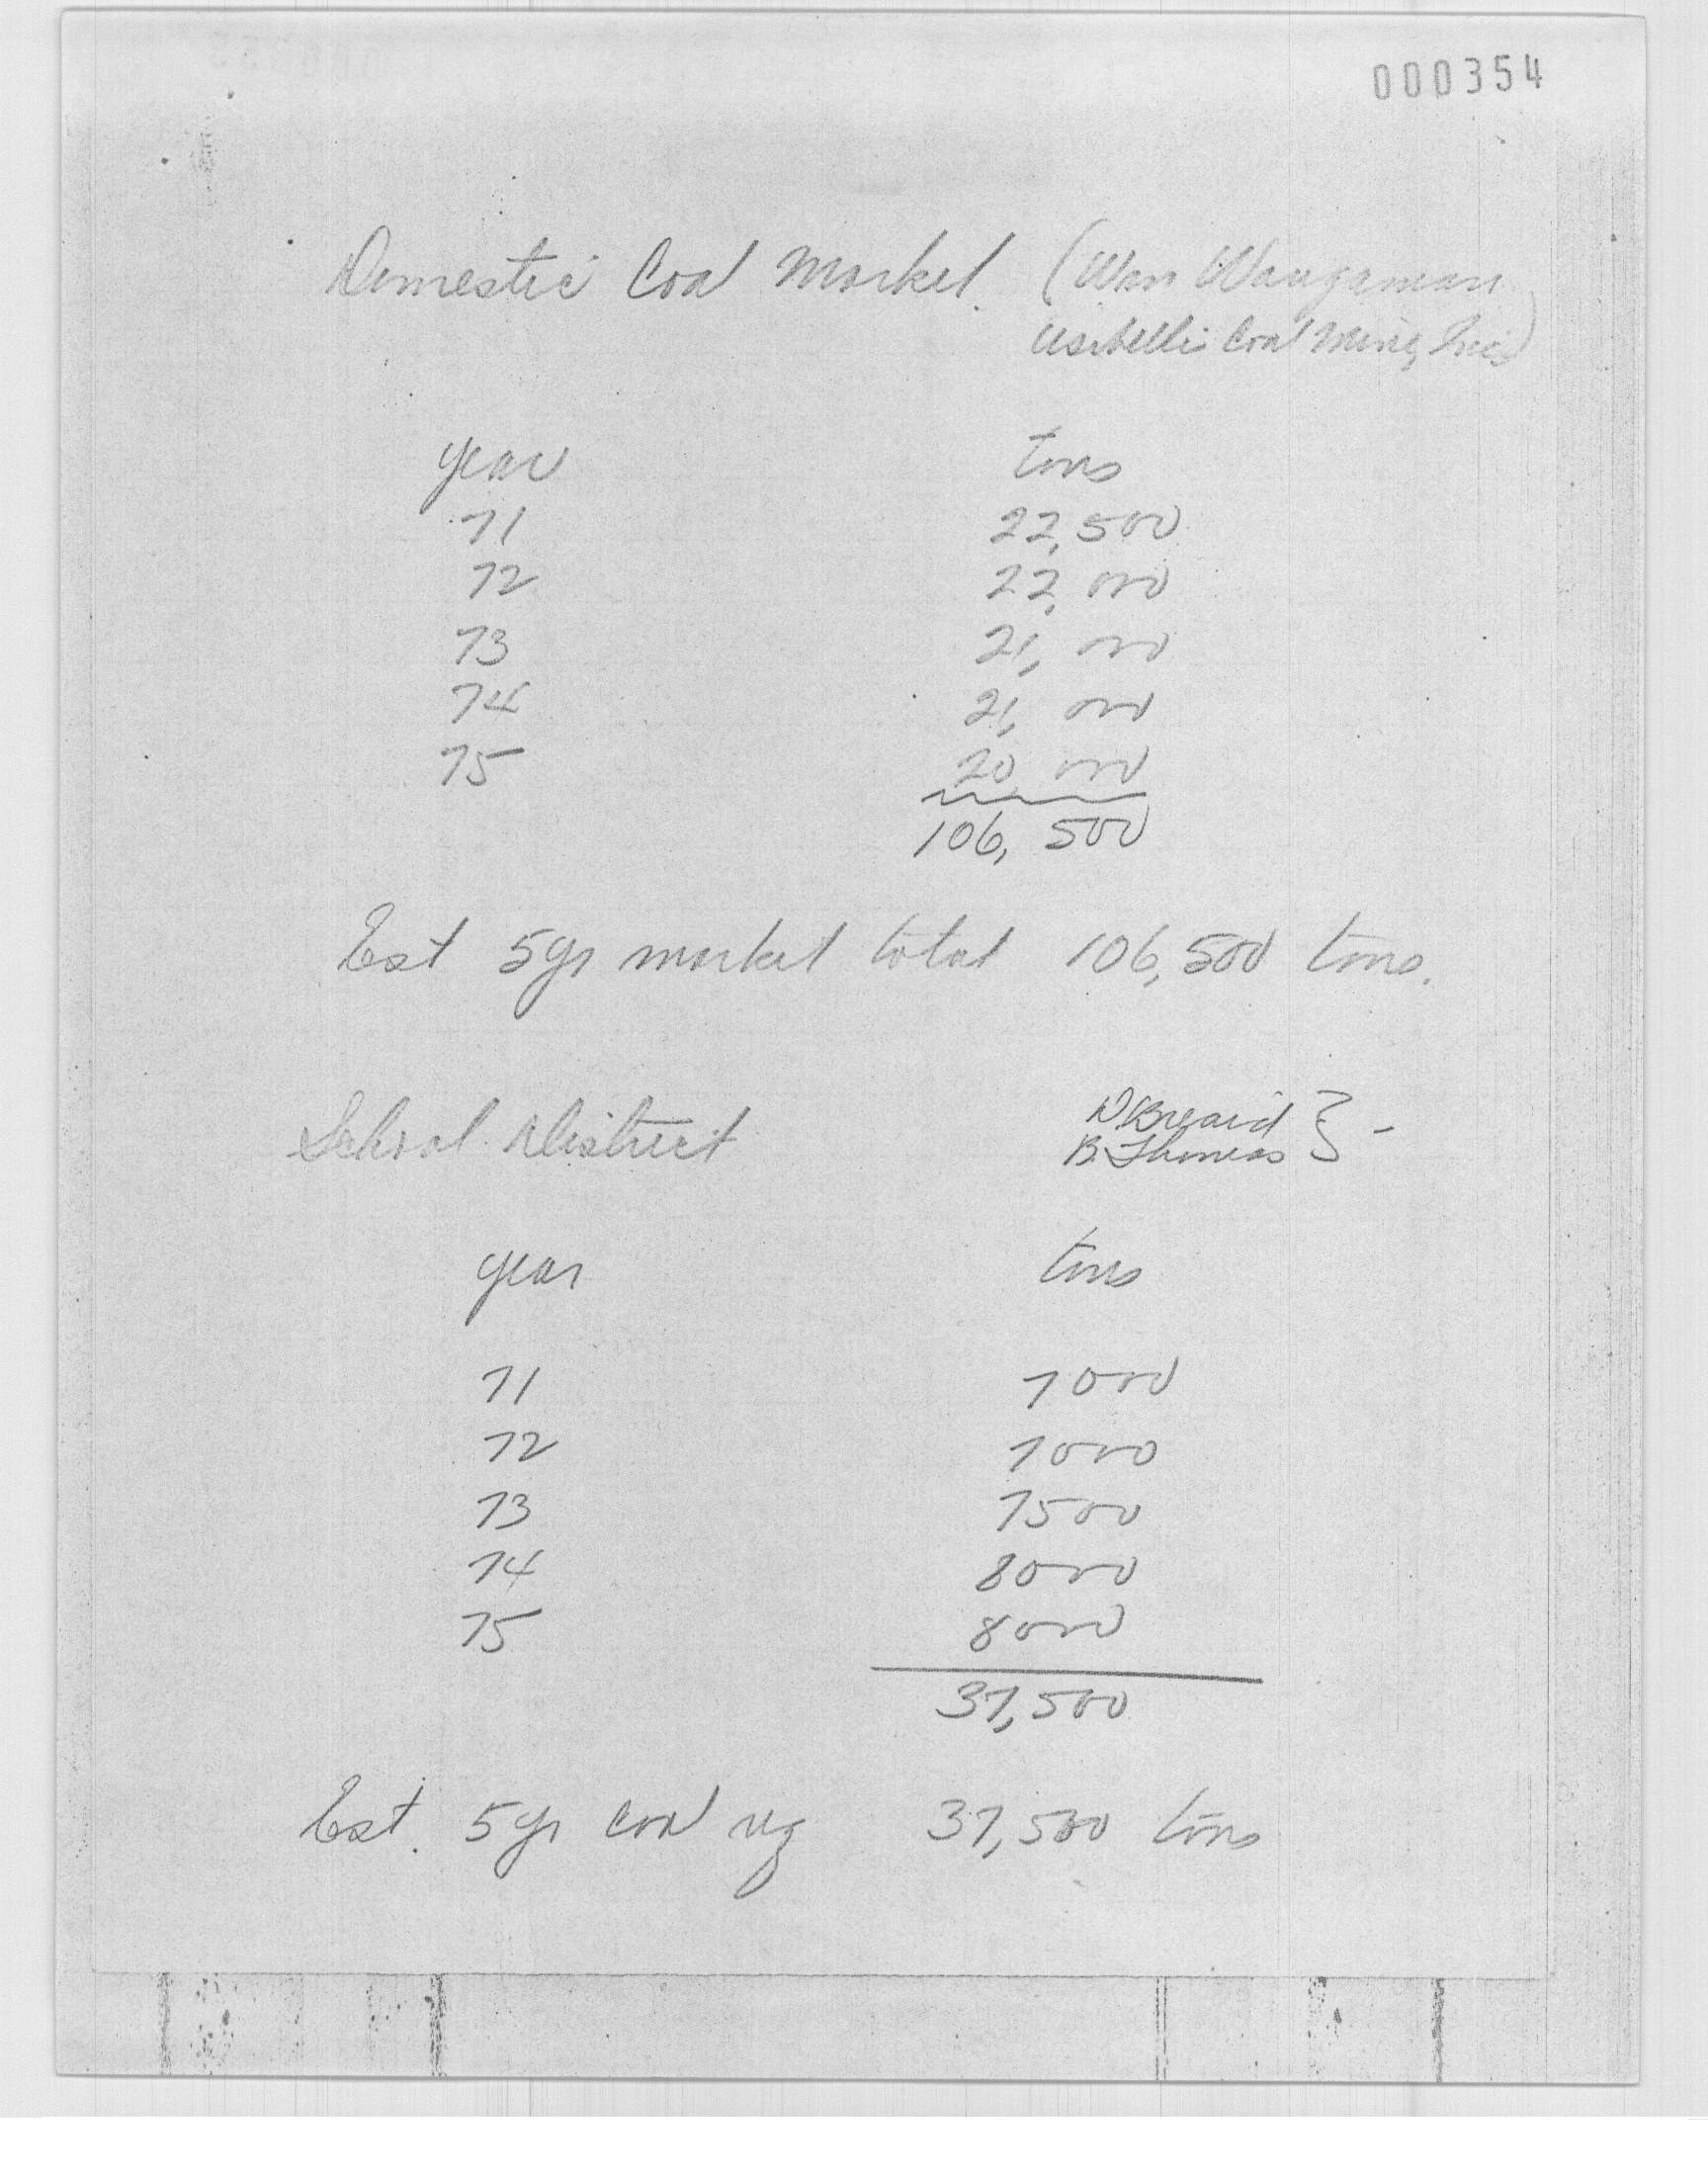 000354
Domestic Coal Market. (Wan Waugaman
Usibelli Coal Mine, Inc)
year tons
71 22,500
72 22,000
73 21,000
74 21,000
75 20,000
106,500
Est 5yr market total 106,500 tons.
School District
B. Thomas } -
year tons
71 7000
72 7000
73 7500
74 8000
75 8000
37,500
Est. 5yr coal 37,500 tons